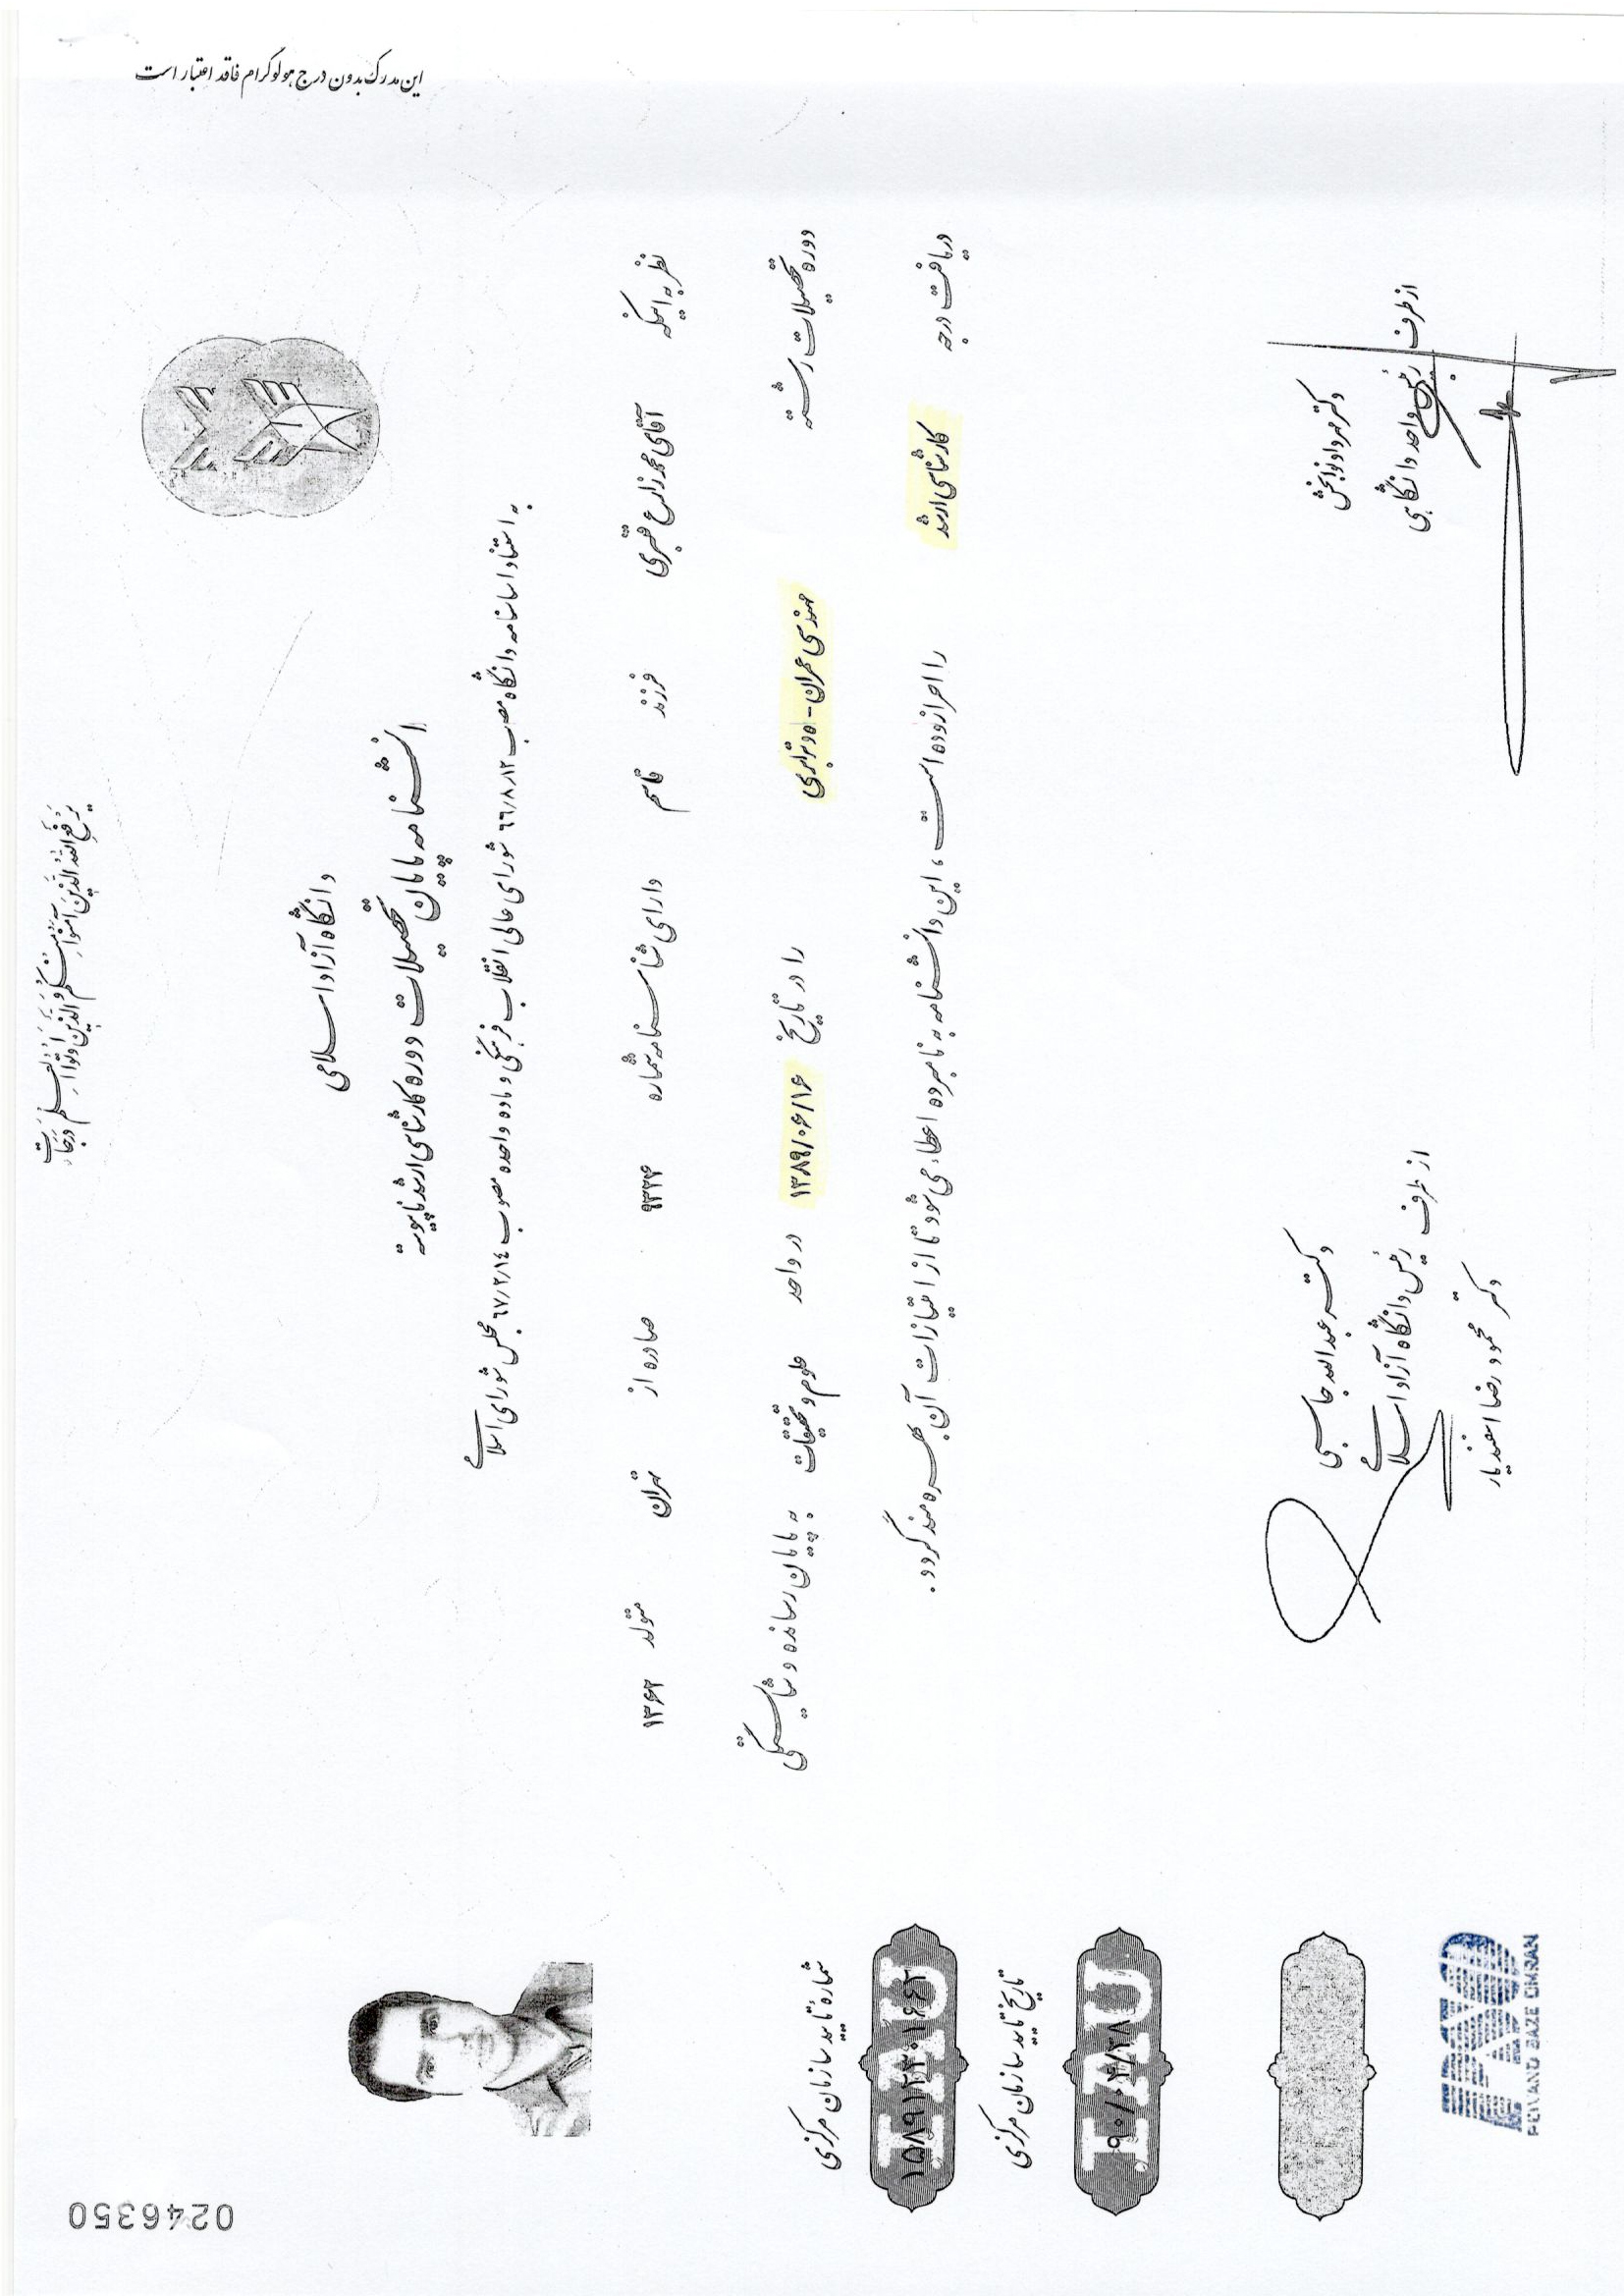 یَرفَعِ اللهُ الَّذینَ آمَنوا مِنکُم وَ الَّذینَ اوتُوا العِلمَ دَرَجات
این مدرک بدون درج هولوگرام فاقد اعتبار است
دانشگاه آزاد اسلامی
دانشنامه پایان تحصیلات دوره کارشناسی ارشد ناپیوسته
به استناد اساسنامه دانشگاه مصوب ۶۶/۸/۱۲ شورای عالی انقلاب فرهنگی و ماده واحده مصوب ۶۷/۲/۱٤ مجلس شورای اسلامی
نظر به اینکه آقای محمد زارع قنبری فرزند قاسم دارای شناسنامه شماره ۹۳۲۴ صادره از تهران متولد ۱۳۶۲
دوره تحصیلات رشته مهندسی عمران - راه و ترابری را در تاریخ ۱۳۸۹/۰۶/۱۶ در واحد علوم و تحقیقات به پایان رسانده و شایستگی
دریافت درجه کارشناسی ارشد را احراز نموده است، این دانشنامه به نامبرده اعطاء می شود تا از امتیازات آن بهره مند گردد.
از طرف رئیس واحد دانشگاهی
دکتر مهرداد نوابخش
دکتر عبدالله جاسبی
رئیس دانشگاه آزاد اسلامی
از طرف
دکتر محمود رضا اسفندیار
شماره تایید سازمان مرکزی
۱۵۸۹۱۲۳۰۱۶۶۲
تاریخ تایید سازمان مرکزی
۹۰/۰۴/۲۸
IAU
IAU
PAYAND SAZE OMRAN
02463350